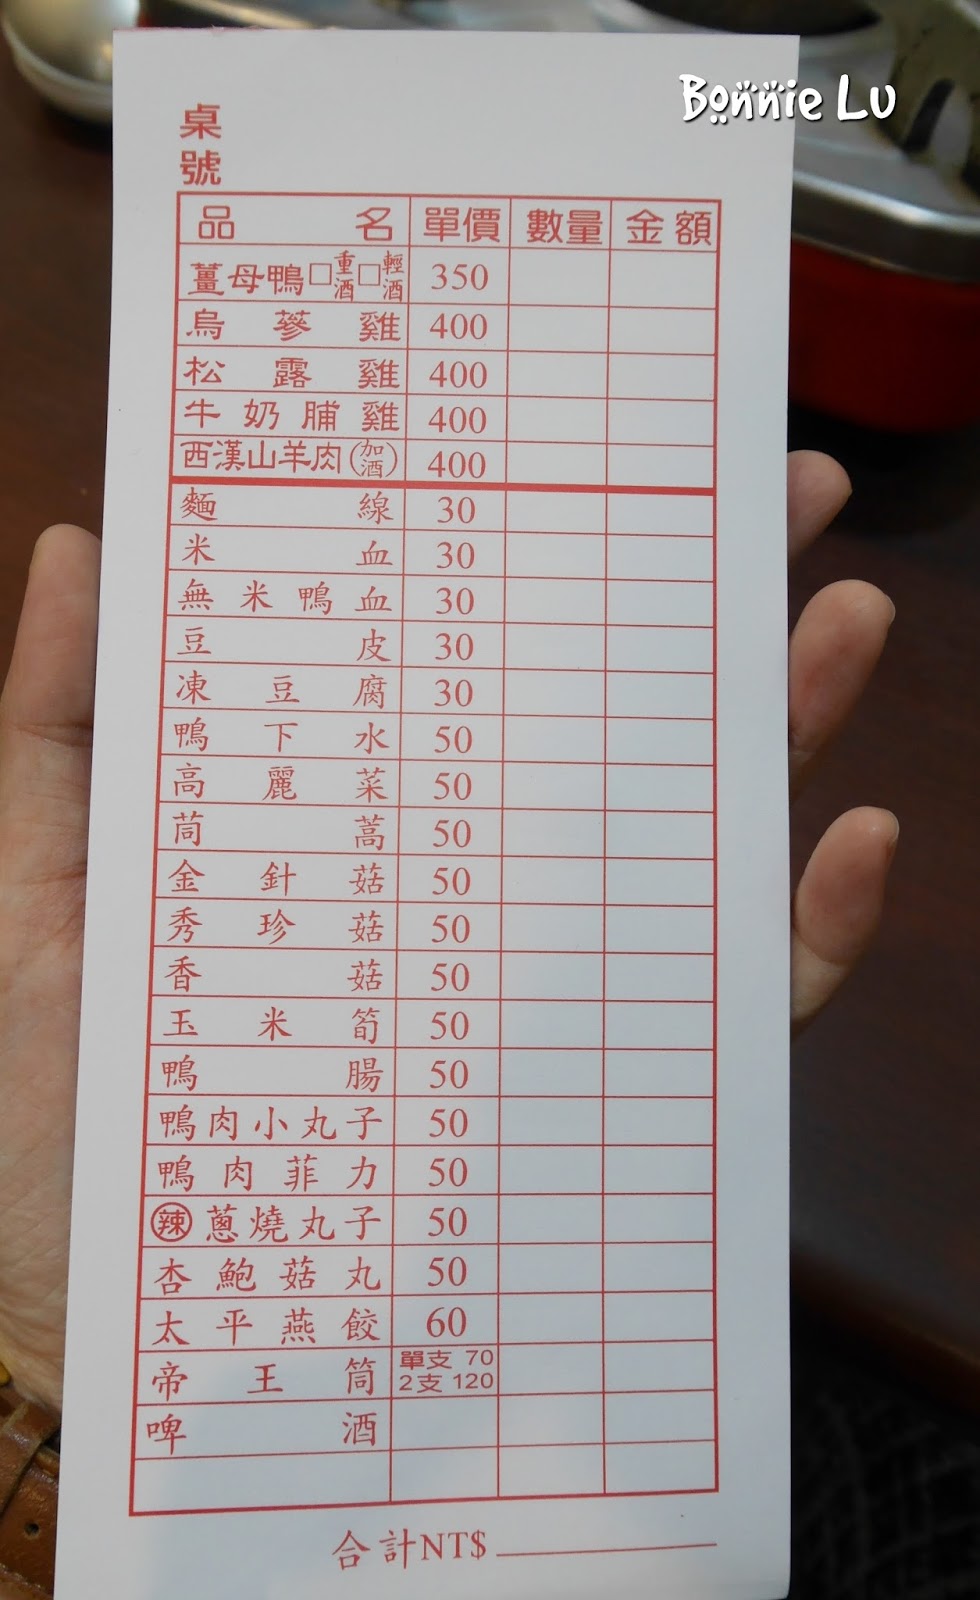 Bonnie Lu
桌
號
品名 單價 數量 金額
薑母鴨□重酒□輕酒 350
烏蔘雞 400
松露雞 400
牛奶脯雞 400
西漢山羊肉(加酒) 400
麵線 30
米血 30
無米鴨血 30
豆皮 30
凍豆腐 30
鴨下水 50
高麗菜 50
茼蒿 50
金針菇 50
秀珍菇 50
香菇 50
玉米筍 50
鴨腸 50
鴨肉小丸子 50
鴨肉菲力 50
辣 蔥燒丸子 50
杏鮑菇丸 50
太平燕餃 60
帝王筒 單支 70
2支 120
啤酒
合計NT$